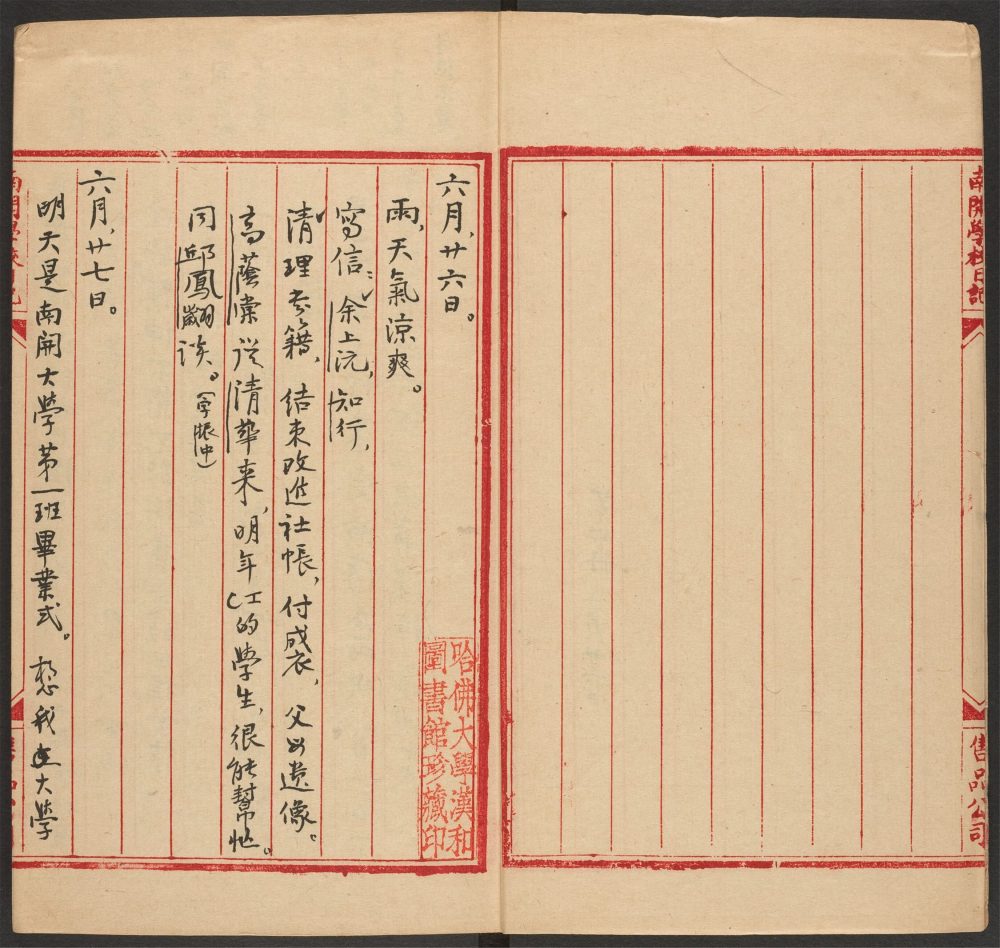 南開學校日記
售品公司
六月,廿六日。
雨,天氣涼爽。
寫信:余上沅,知行,
清理書籍,結束改進社帳,付成衣,父母遺像。
高蔭棠從清華來,明年CI的學生,很能幫忙。
同邱鳳翽談。(字振中)
六月,廿七日。
明天是南開大學第一班畢業式。想我在大學
哈佛大學漢和
圖書館珍藏印